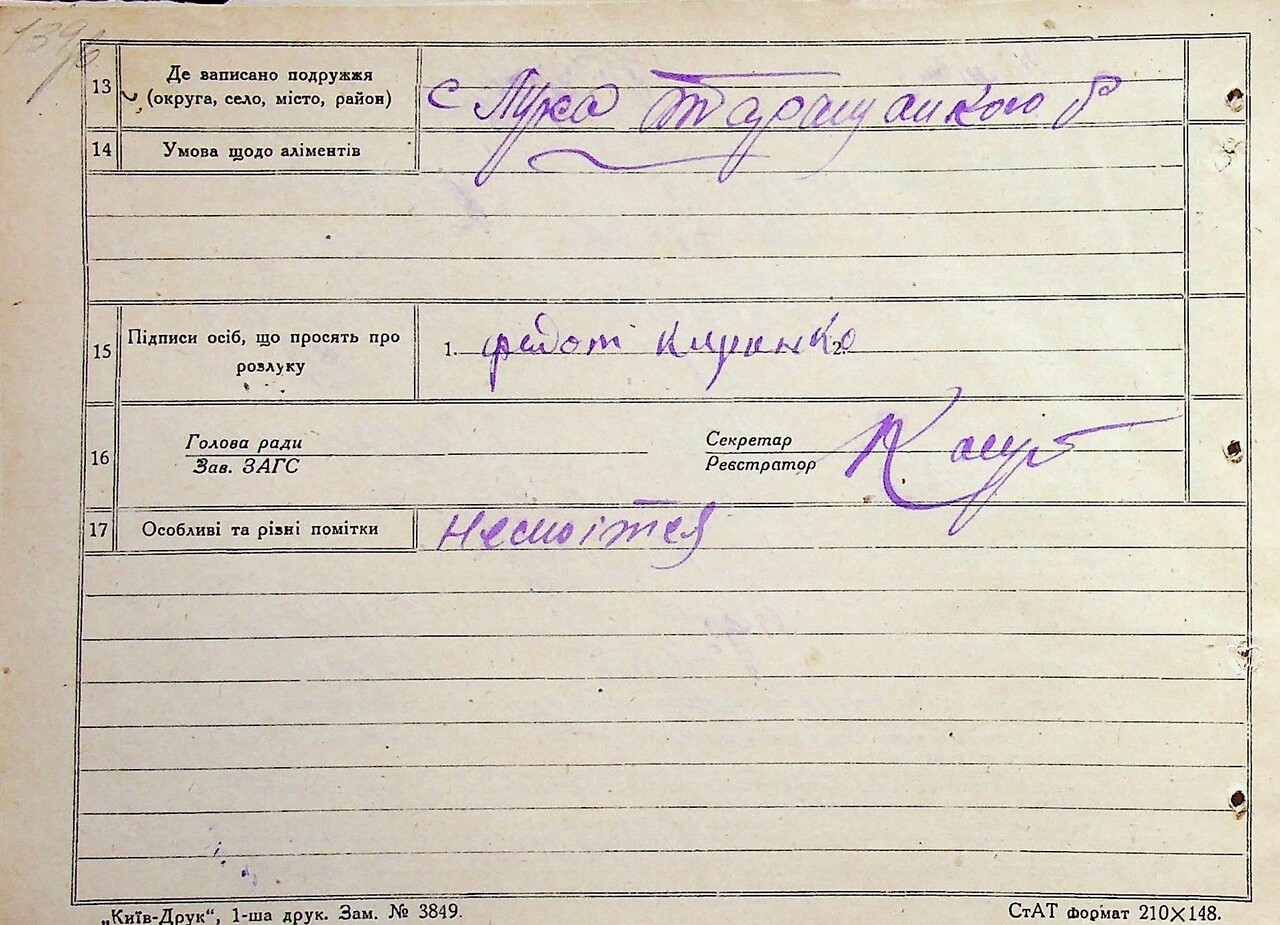 139б
13 Де записано подружжя
(округа, село, місто, район) с Лука Таращанкого р
14 Умова щодо аліментів
15 Підписи осіб, що просять про
розлуку 1. федот 2.
16 Голова ради
Зав. ЗАГС
Секретар
Реєстратор
17 Особливі та різні помітки
„Київ-Друк“, 1-ша друк. Зам. № 3849. СтАТ формат 210×148.